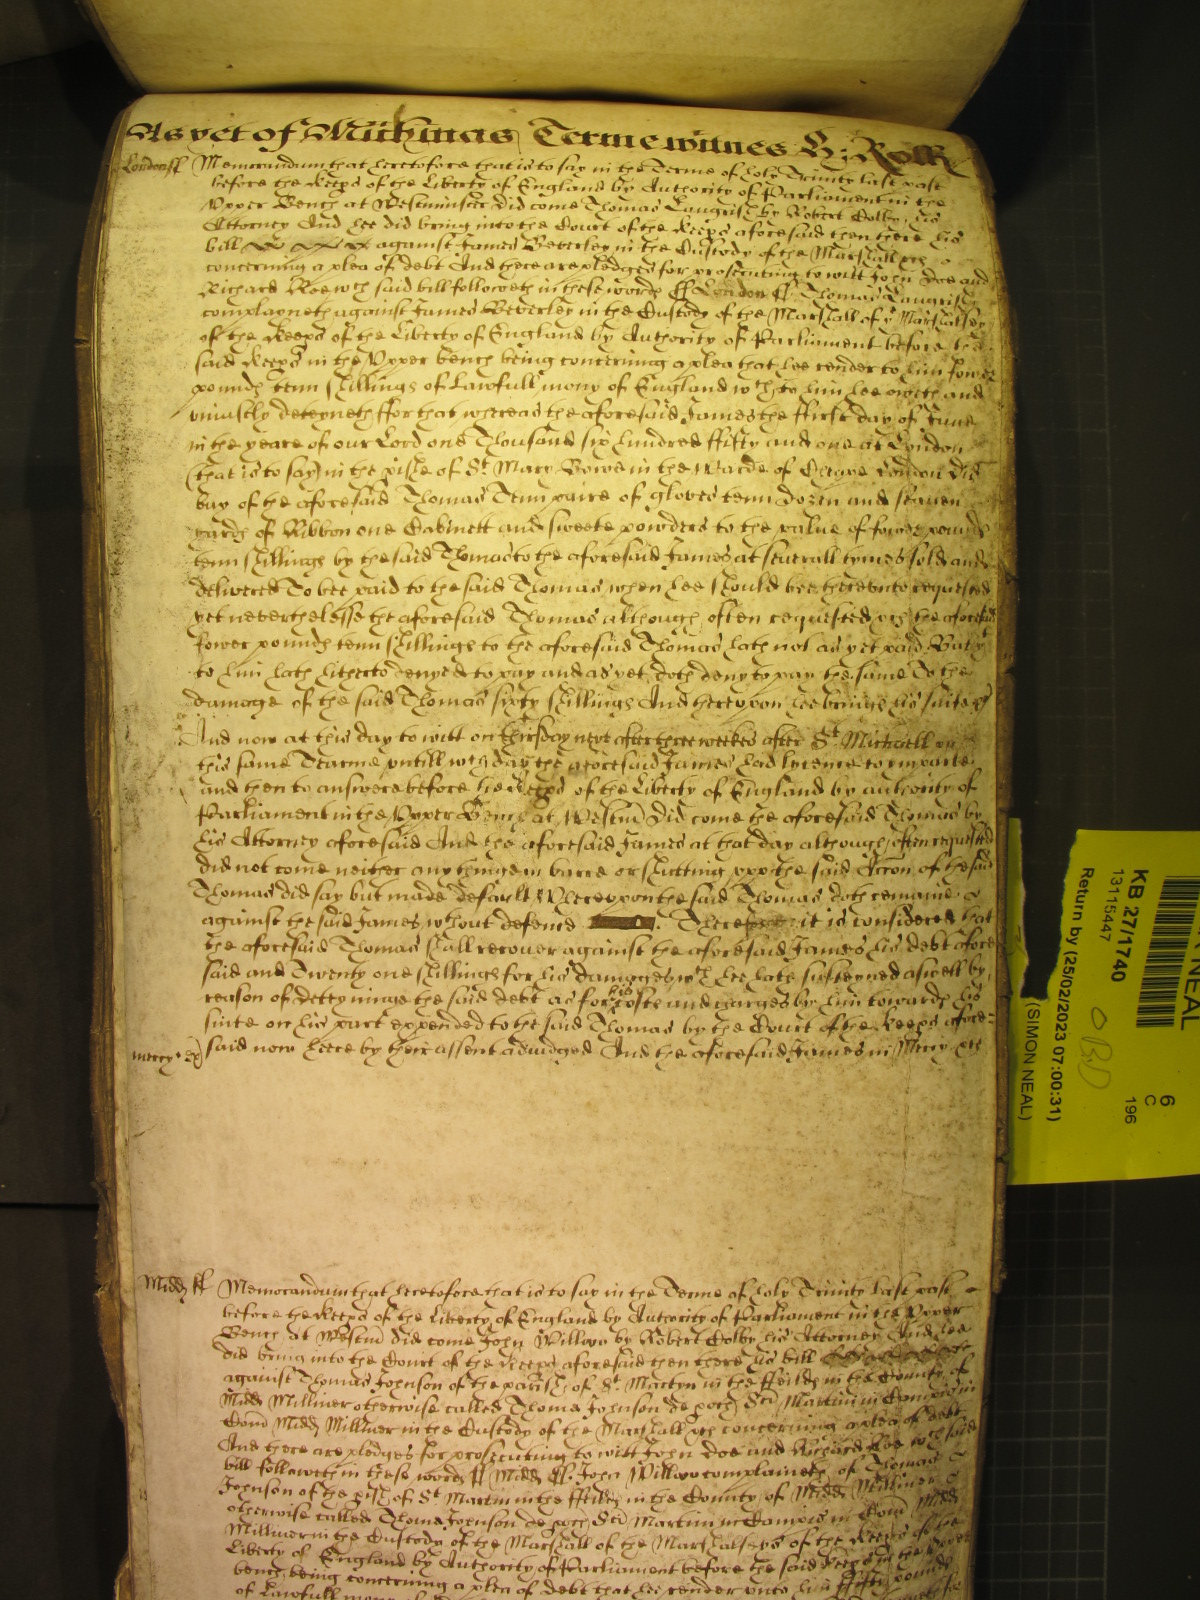 As yet of Michmas Terme witnes H: Rolle
London ff Memorandum that heretofore that is to say in the Terme of holy Trinity last past
before the Keeps of the Liberty of England by Authority of Parliament in the
Upper Bench at Westminster did come Thomas Langrish by Robert Colby his
Attorney And hee did bring into the Court of the Keeps aforesaid then there his
bill against James Beverley in the Custody of the Marshall &c
concerning a plea of debt And there are pledges for prosecuting to witt John Doe and
Richard Roe wch said bill followeth in these words ff London ff Thomas Langrish
complayneth against James Beverley in the Custody of the Marshall of ye Marshalsey
of the Keeps of the Liberty of England by Authority of Parliament before the
said Keeps in the Upper bench being concerning a plea that hee render to him fower
pounds tenn shillings of Lawfull mony of England wch to him hee oweth and
uniustly deteyneth ffor that whereas the aforesaid James the ffirst day of June
in the yeare of our Lord one Thousand six hundred ffifty and one at London
(that is to say) in the pish of St Mary Bowe in the Warde of Cheape London did
buy of the aforesaid Thomas Tenn paire of gloves tenn dozen and seaven
yards of Ribbon one Cabinett and sweete powders to the value of fower pounds
tenn shillings by the said Thomas to the aforesaid James at severall tymes sold and
delivered To bee paid to the said Thomas when hee should bee thereunto requested
yet neverthelesse the aforesaid Thomas although often requested &c the aforesaid
fower pounds tenn shillings to the aforesaid Thomas hath not as yet paid But yt
to him hath hitherto denyed to pay and as yet doth deny to pay the same To the
damage of the said Thomas sixty shillings And hereupon hee brings his suite &c
And now at this day to witt on thirsday next after three weekes after St Michaell in
this same Tearme untill wch day the aforesaid James had lycence to imparle
and then to answere before the Keeps of the Liberty of England by authority of
Parliament in the Upper Bench at Westmr did come the aforesaid Thomas by
his Attorney aforesaid And the aforesaid James at that day although often requested
did not come neither any thinge in barre or shutting upp the said Accon of the said
Thomas did say but made default Whereupon the said Thomas doth remaine
against the said James without defence Therefore it is considered that
the aforesaid Thomas shall recover against the aforesaid James his debt afore
said and Twenty one shillings for his damages wch hee hath susteyned aswell by
reason of deteyninge the said debt as for his costs and charges by him towards his
suite on his part expended to the said Thomas by the Court of the Keeps afore=
mercy &c said now heere by their assent adiudged And the aforesaid James in Mercy &c
Midd ff Memorandum that heretofore that is to say in the Terme of holy Trinity last past
before the Keeps of the Liberty of England by Authority of Parliament in the Upper
Bench at Westmr did come John Willow by Robert Colby his Attorney And hee
did bring into the Court of the Keeps aforesaid then there his bill
against Thomas Johnson of the parish of St Martyn in the ffeilds in the County of
Midd Milliner otherwise called Thoma Johnson de poch Sci Martini in Campis in
Com Midd Milliner in the Custody of the Marshall &c concerning a plea of debt
And there are pledges for prosecuting to witt John Doe and Richard Roe wch said
bill followeth in these words ff Midd ff John Willow complaineth of Thomas
Johnson of the pish of St Martin in the ffeilds in the County of Midd Milliner
otherwise called Thoma Johnson de poch Sci Martini in Campis in Com Midd
Milliner in the Custody of the Marshall of the Marshalseys of the Keeps of the
Liberty of England by Authority of Parliament before the said Keeps in the Upper
bench being concerning a plea of debt that hee render unto him ffifty pounds
of Lawfull
NEAL
KB 27/1740
13115447
Return by (25/02/2023 07:00:31)
(SIMON NEAL)
6
C
196